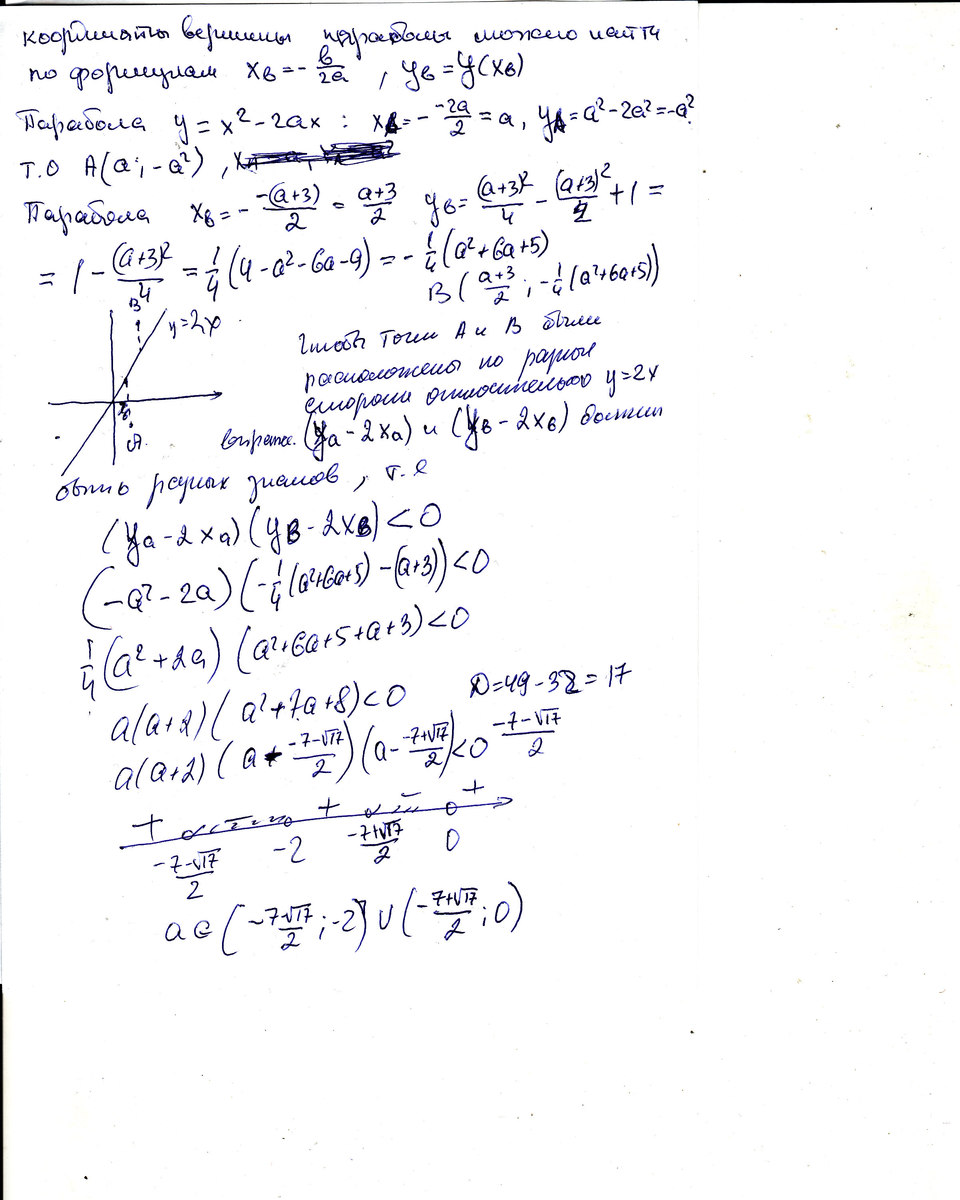 координаты вершины параболы можно найти
по формулам x_в = -b/2a , y_в = y(x_в)
Парабола y = x² - 2ax : x_A = - -2a/2 = a, y_A = a² - 2a² = -a²
т.о A(a; -a²) ,
Парабола x_в = - -(a+3)/2 = a+3/2 y_в = (a+3)²/4 - (a+3)²/2 + 1 =
= 1 - (a+3)²/4 = 1/4 (4 - a² - 6a - 9) = - 1/4 (a² + 6a + 5)
B ( a+3/2 ; -1/4 (a² + 6a + 5))
B
y = 2x
A
Чтобы точки A и B были
расположены по разные
стороны относительно y = 2x
выраже. (y_a - 2x_a) и (y_в - 2x_в) должны
быть разных знаков, т.е
(y_a - 2x_a) (y_B - 2x_B) < 0
(-a² - 2a) (-1/4 (a² + 6a + 5) - (a+3)) < 0
1/4 (a² + 2a) (a² + 6a + 5 + a + 3) < 0
a(a+2) (a² + 7a + 8) < 0 D = 49 - 32 = 17
a(a+2) (a - -7-√17/2) (a - -7+√17/2) < 0 -7-√17/2
+ - + - +
-7-√17/2 -2 -7+√17/2 0
a ∈ (-7-√17/2 ; -2) ∪ (-7+√17/2 ; 0)